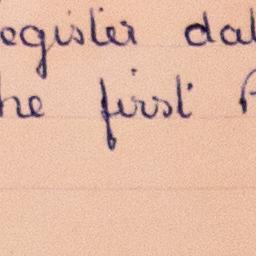 egister dat
he first